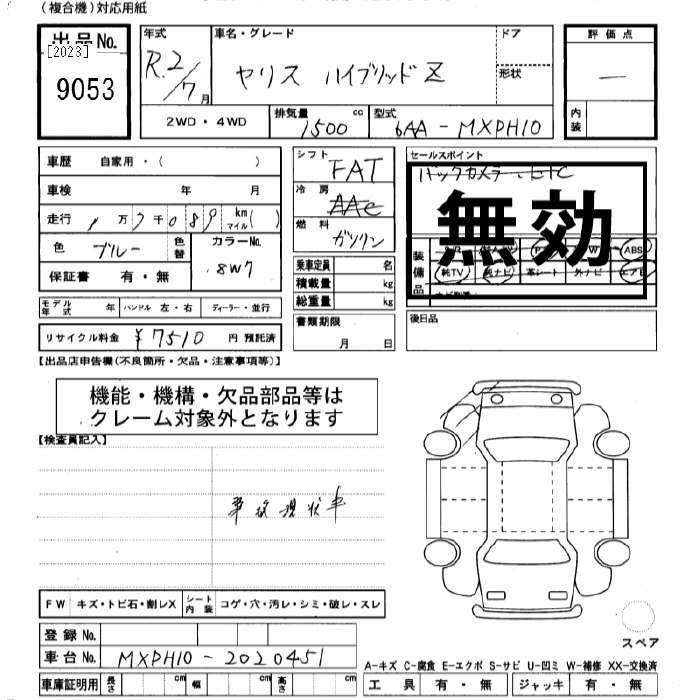 (複合機)対応用紙
出品No.
[2023]
9053
年式
R.2/7月
車名・グレード
ヤリス ハイブリッドZ
ドア
形状
評価点
—
内装
2WD・4WD
排気量 cc
1500
型式
6AA-MXPH10
車歴 自家用・( )
車検 年 月
走行 1万7千089 km マイル( )
色 ブルー 色替
カラーNo.
8W7
保証書 有・無
シフト
FAT
冷房
AAC
燃料
ガソリン
セールスポイント
バックカメラ、ETC
無効
装備品
ABS
純TV 純ナビ 本シート 外ナビ エアB
乗車定員 名
積載量 kg
総重量 kg
モデル年式 年 ハンドル 左・右 ディーラー・並行
書類期限
月 日
後日品
リサイクル料金 ¥7510 円 預託済
【出品店申告欄(不良箇所・欠品・注意事項等)】
機能・機構・欠品部品等は
クレーム対象外となります
【検査員記入】
事故現状車
FW キズ・トビ石・割レX シート内装 コゲ・穴・汚レ・シミ・破レ・スレ
登録No.
車台No. MXPH10-2020451
車庫証明用 長さ cm 幅 cm 高さ cm
スペア
A-キズ C-腐食 E-エクボ S-サビ U-凹ミ W-補修 XX-交換済
工具 有・無 ジャッキ 有・無